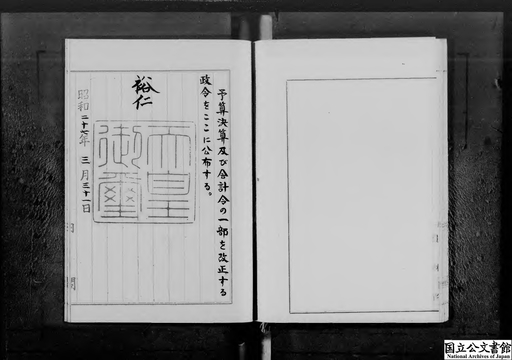 予算決算及び会計令の一部を改正する
政令をここに公布する。
裕仁
天皇
御璽
昭和二十七年 三月三十一日
国立公文書館
National Archives of Japan